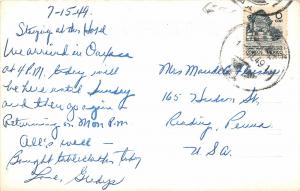 7-15-49.
Staying at this Hotel
We arrived in Oaxaca
at 4 P.M. today will
be here until Sunday
and then go again
Returning on Mon. P.M
All's well —
Bought tablecloth today
Love, Gladys
Mrs Maudella
165 Hudson St.
Reading, Penna
U.S.A